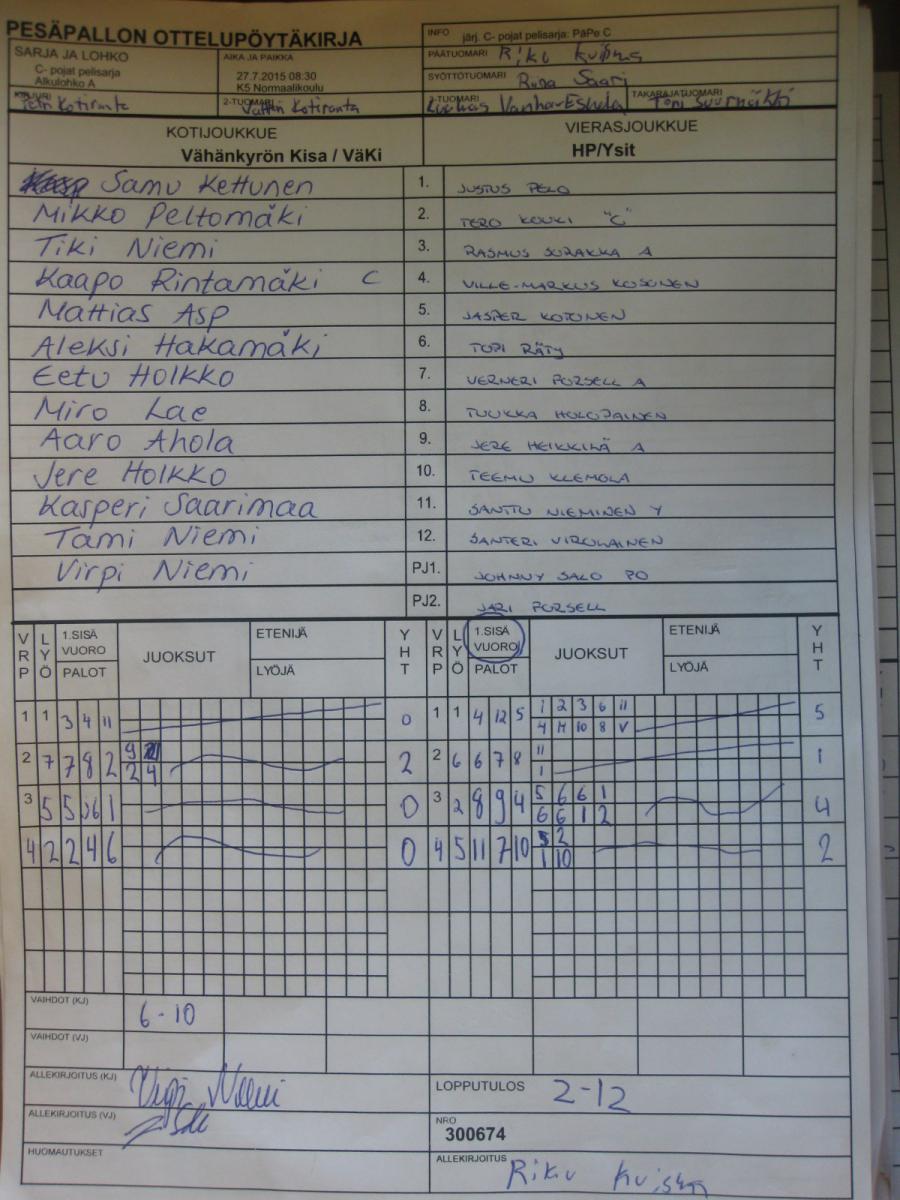 PESÄPALLON OTTELUPÖYTÄKIRJA
INFO järj. C- pojat pelisarja: PäPe C
SARJA JA LOHKO
C- pojat pelisarja
Alkulohko A
AIKA JA PAIKKA
27.7.2015 08:30
K5 Normaalikoulu
PÄÄTUOMARI Riku
SYÖTTÖTUOMARI Saari
KIRJURI Petri Kotiranta
2-TUOMARI Kotiranta
3-TUOMARI
TAKARAJATUOMARI Toni
KOTIJOUKKUE
Vähänkyrön Kisa / VäKi
VIERASJOUKKUE
HP/Ysit
Samu Kettunen 1. JUSTUS PELO
Mikko Peltomäki 2. TERO KOUKI "C"
Tiki Niemi 3. RASMUS SURAKKA A
Kaapo Rintamäki C 4. VILLE-MARKUS KOSONEN
Mattias Asp 5. JASPER KOTONEN
Aleksi Hakamäki 6. TOPI RÄTY
Eetu Holkko 7. VERNERI PURSELL A
Miro Lae 8. TUUKKA HOLOPAINEN
Aaro Ahola 9. JERE HEIKKILÄ A
Jere Holkko 10. TEEMU KLEMOLA
Kasperi Saarimaa 11. SANTTU NIEMINEN Y
Tami Niemi 12. SANTERI VIROLAINEN
Virpi Niemi PJ1. JOHNNY SALO PO
PJ2. JARI PURSELL
VRP LYÖ 1.SISÄ VUORO PALOT JUOKSUT ETENIJÄ LYÖJÄ YHT VRP LYÖ 1.SISÄ VUORO PALOT JUOKSUT ETENIJÄ LYÖJÄ YHT
1 1 3 4 11 0 1 1 4 12 5 1 2 3 6 11 5
4 10 8 V
2 7 7 8 2 9 2 2 6 6 7 8 11 1
2 4 1
3 5 5 1 0 3 2 8 9 4 5 6 6 1 4
6 6 1 2
4 2 2 4 6 0 4 5 11 7 10 2 2
1 10
VAIHDOT (KJ) 6-10
VAIHDOT (VJ)
ALLEKIRJOITUS (KJ)
LOPPUTULOS 2-12
ALLEKIRJOITUS (VJ)
NRO
300674
HUOMAUTUKSET
ALLEKIRJOITUS Riku